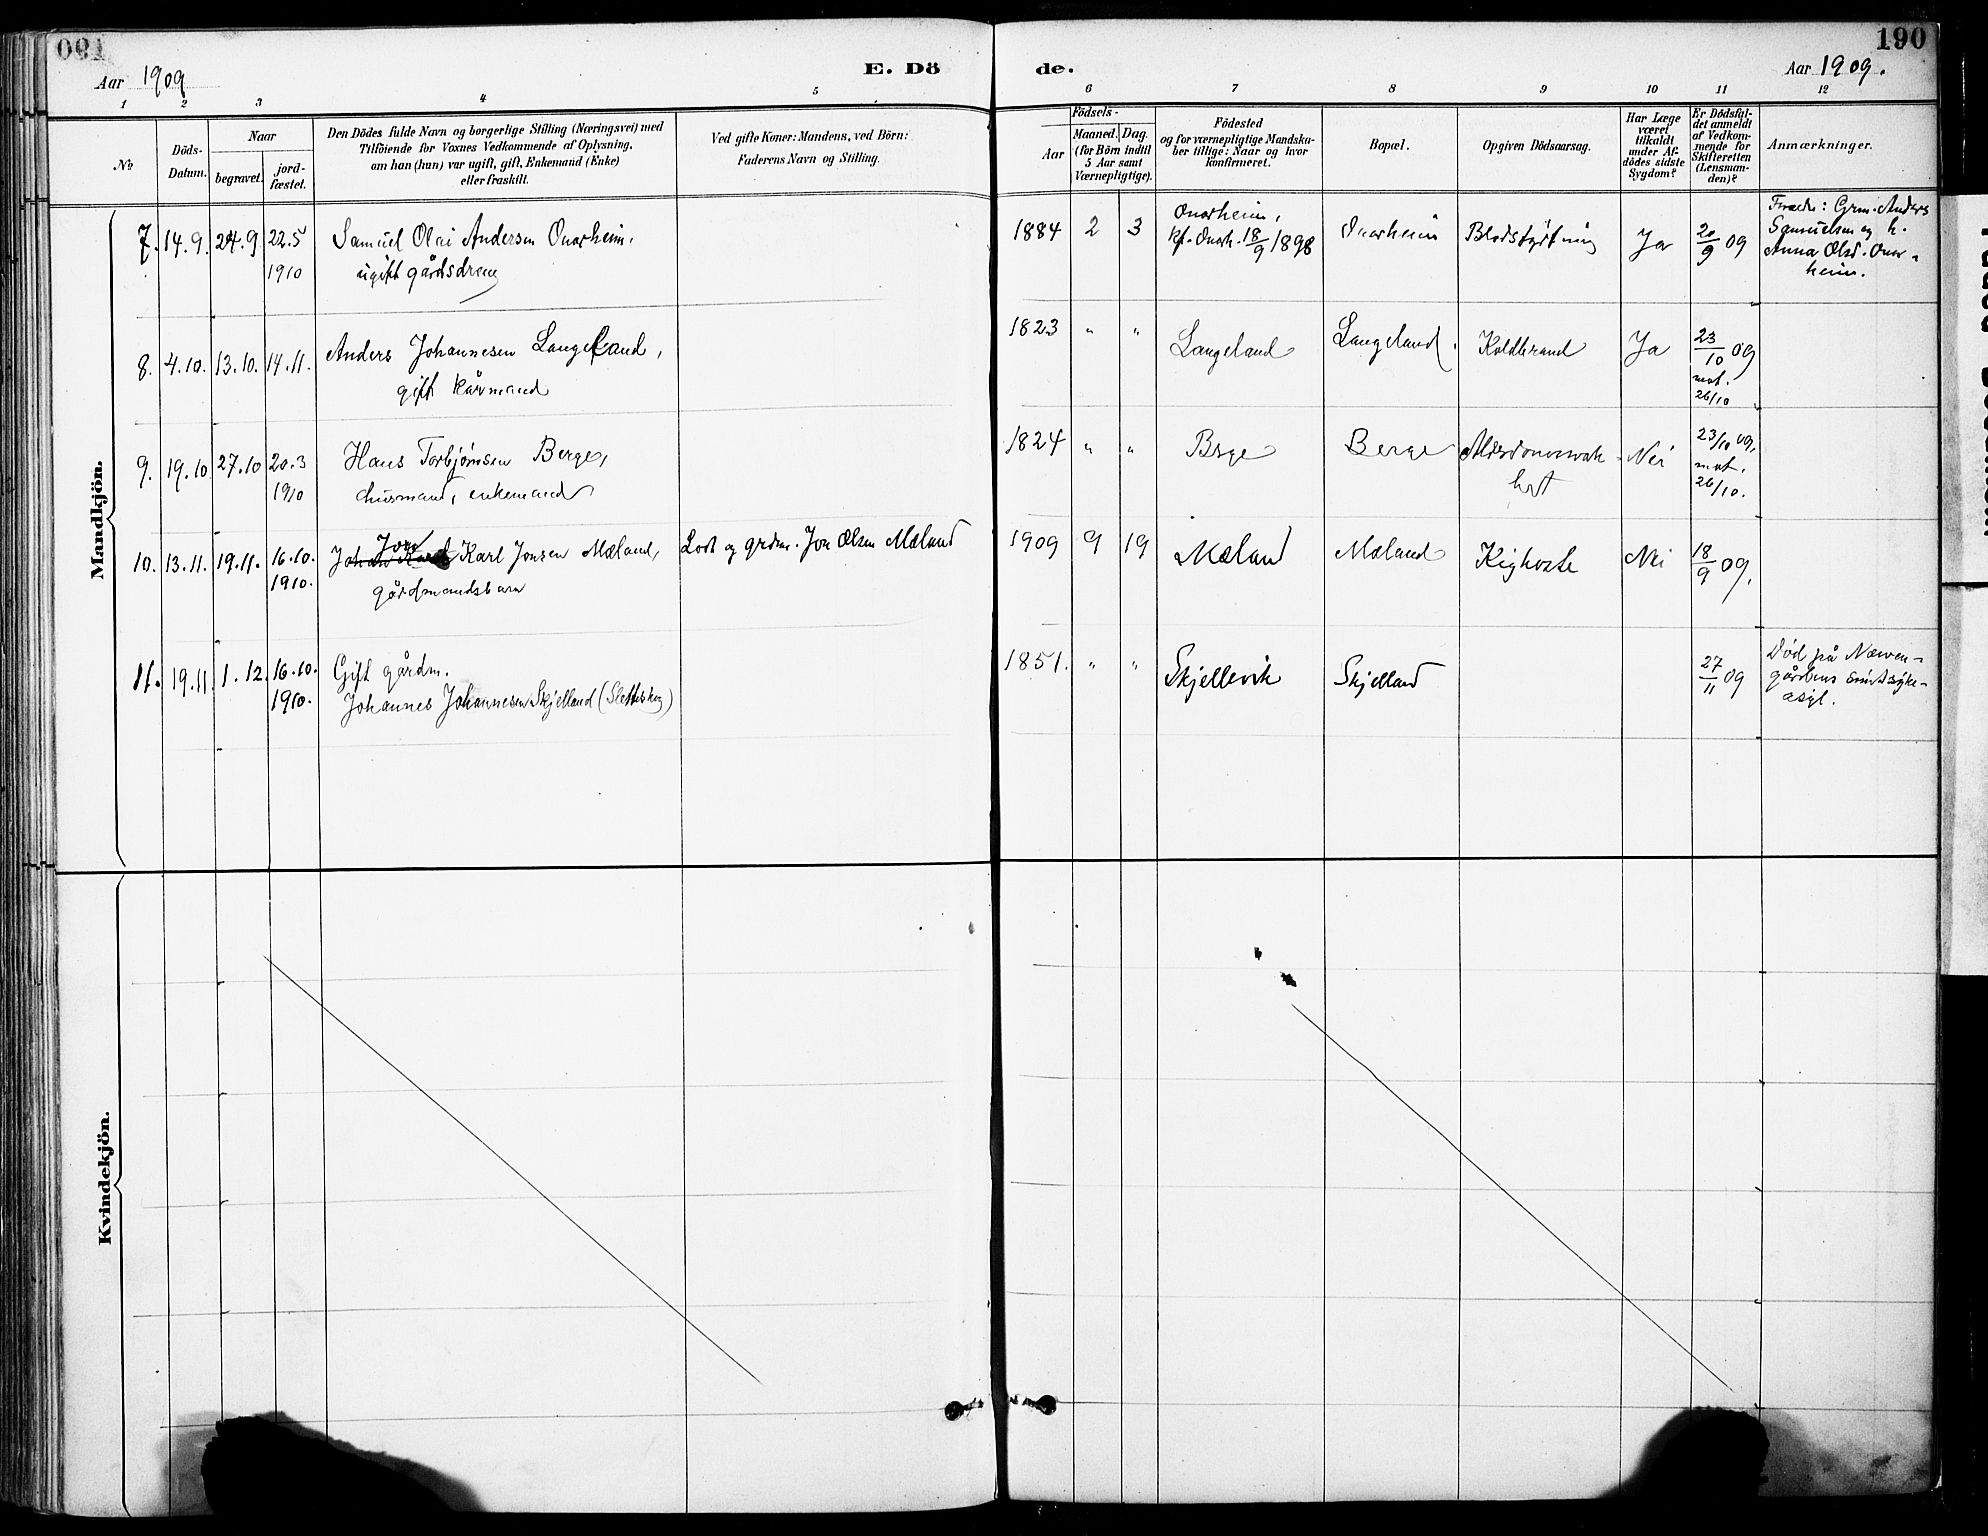 190
Aar 1909
E. Dö
1
2
3
4
5
№
Döds-
Datum.
Naar
begravet.
jord-
fæstet.
Den Dödes fulde Navn og borgerlige Stilling (Næringsvei) med
Tilföiende for Voxnes Vedkommende af Oplysning,
om han (hun) var ugift, gift, Enkemand (Enke)
eller fraskilt.
Ved gifte Koner: Mandens, ved Börn:
Faderens Navn og Stilling.
Mandkjön.
7. 14.9. 24.9 22.5 Samuel Olai Andersen Onarheim,
1910 ugift gårdsdreng
8. 4.10. 13.10. 14.11. Anders Johannesen Langeland,
gift kårmand
9. 19.10 27.10 20.3 Hans Torbjørnsen Berge,
1910 husmand, enkemand
10. 13.11. 19.11. 16.10. Karl Jonsen Mæland, Lods og grdm. Jon Olsen Mæland
1910. gårdmandsbarn
11. 19.11. 1.12. 16.10. Gift gårdm.
1910. Johannes Johannesen Skjelland (Sletteskog)
Kvindekjön.
190
de.
Aar 1909.
6
7
8
9
10
11
12
Födsels-
Aar
Maaned. Dag.
(for Börn indtil
5 Aar samt
Værnepligtige).
Födested
og for værnepligtige Mandska-
ber tillige: Naar og hvor
konfirmeret.
Bopæl.
Opgiven Dödsaarsag.
Har Læge
været
tilkaldt
under Af-
dödes sidste
Sygdom?
Er Dödsfal-
det anmeldt
af Vedkom-
mende for
Skifteretten
(Lensman-
den)?
Anmærkninger.
1884 2 3 Onarheim,
kf. Onarh. 18/9 1898 Onarheim Blodstyrtning Ja 20/9 09
Foræld: Grm. Anders
Samuelsen og h.
Anna Olsd. Onar-
heim.
1823 " " Langeland Langeland. Koldbrand Ja 23/10 09
mot.
26/10
1824 " " Berge Berge Nei 23/10 09,
mot.
26/10.
1909 9 19 Mæland Mæland Kighoste Nei 18/9 09,
1851. " " Skjellevik Skjelland 27/11 09
Død på Neven-
gårdens sindssyke-
asyl.